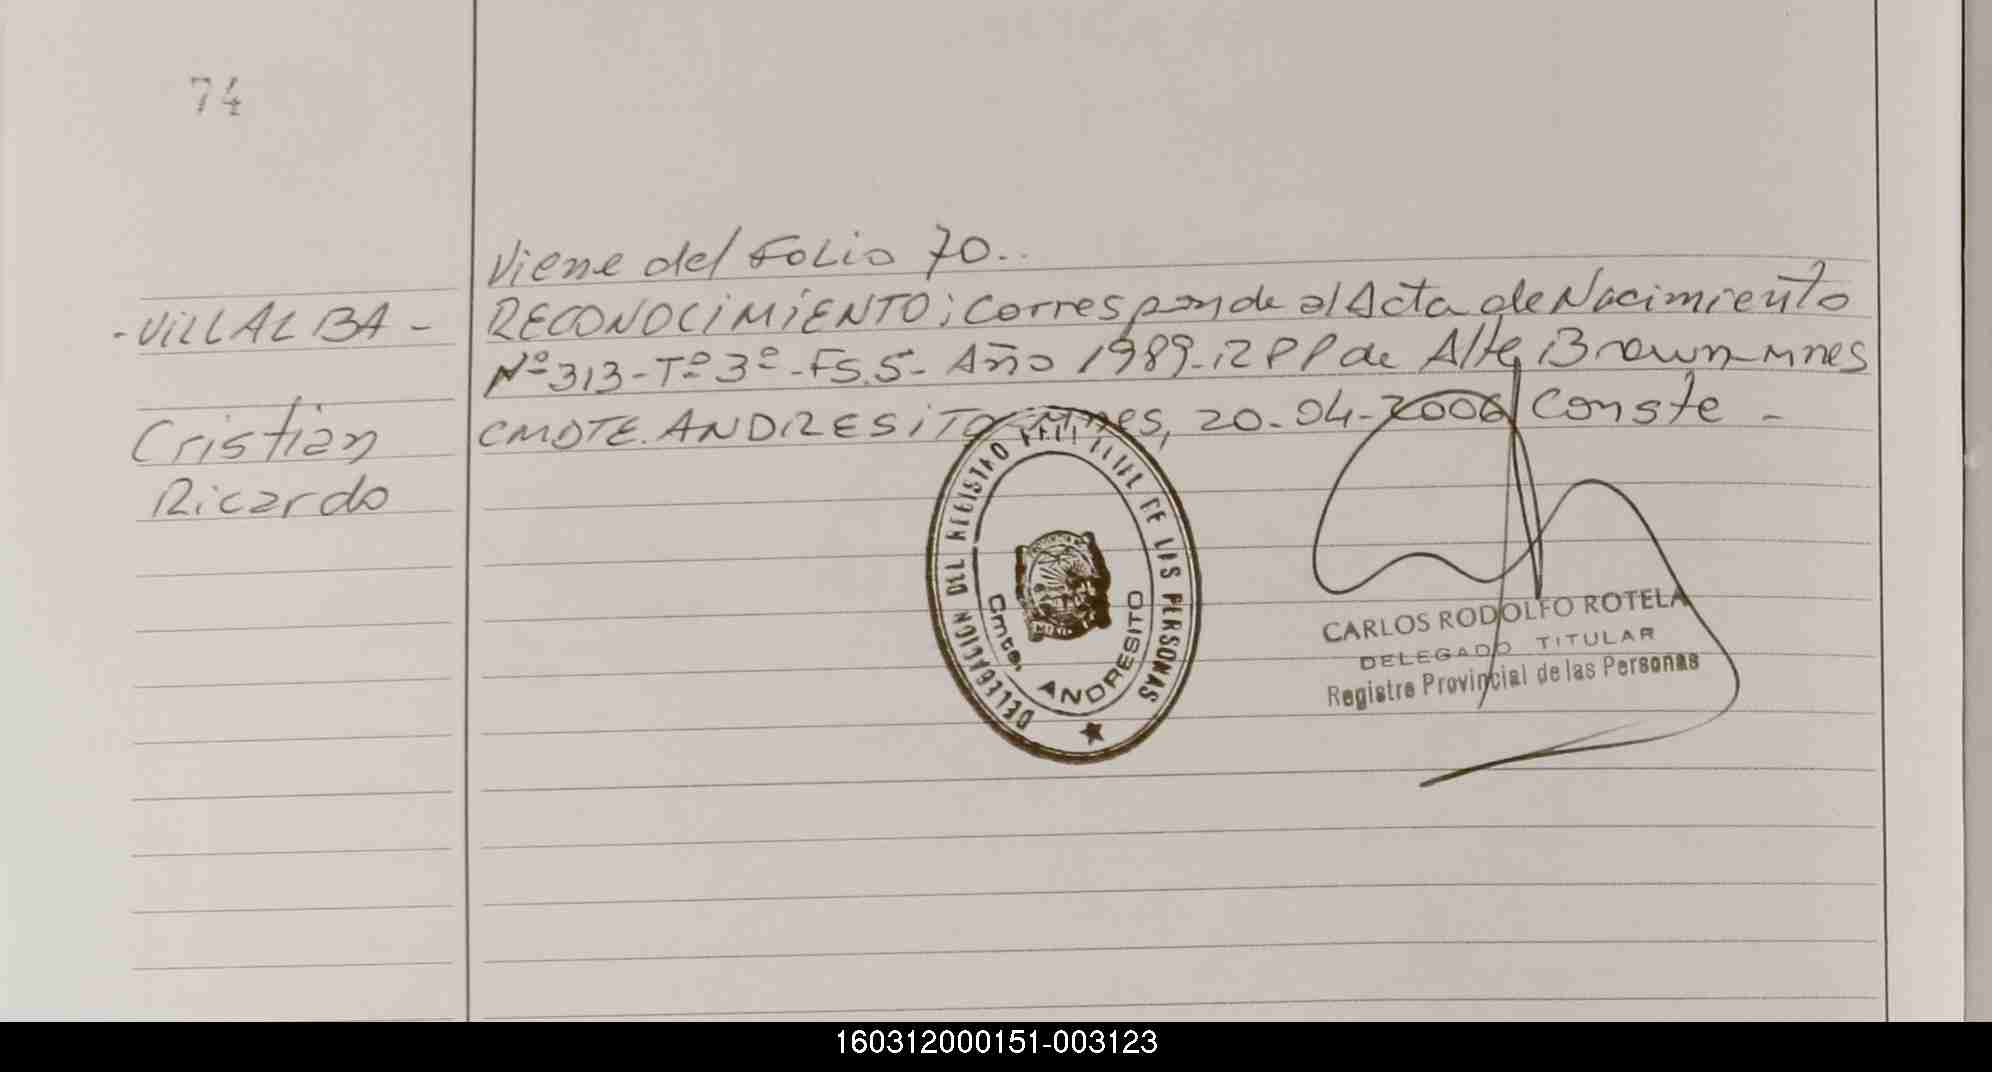 74
Viene del Folio 70..
-VILLALBA-
Cristian
Ricardo
RECONOCIMIENTO; Corresponde al Acta de Nacimiento
Nº 313-Tº 3º-FS.5- Año 1989-RPP de Alte Brown-Mnes
CMDTE. ANDRESITO Mnes, 20-04-2006 Conste -
DELEGACION DEL REGISTRO PROVINCIAL DE LAS PERSONAS
Cmte. ANDRESITO
CARLOS RODOLFO ROTELA
DELEGADO TITULAR
Registro Provincial de las Personas
160312000151-003123